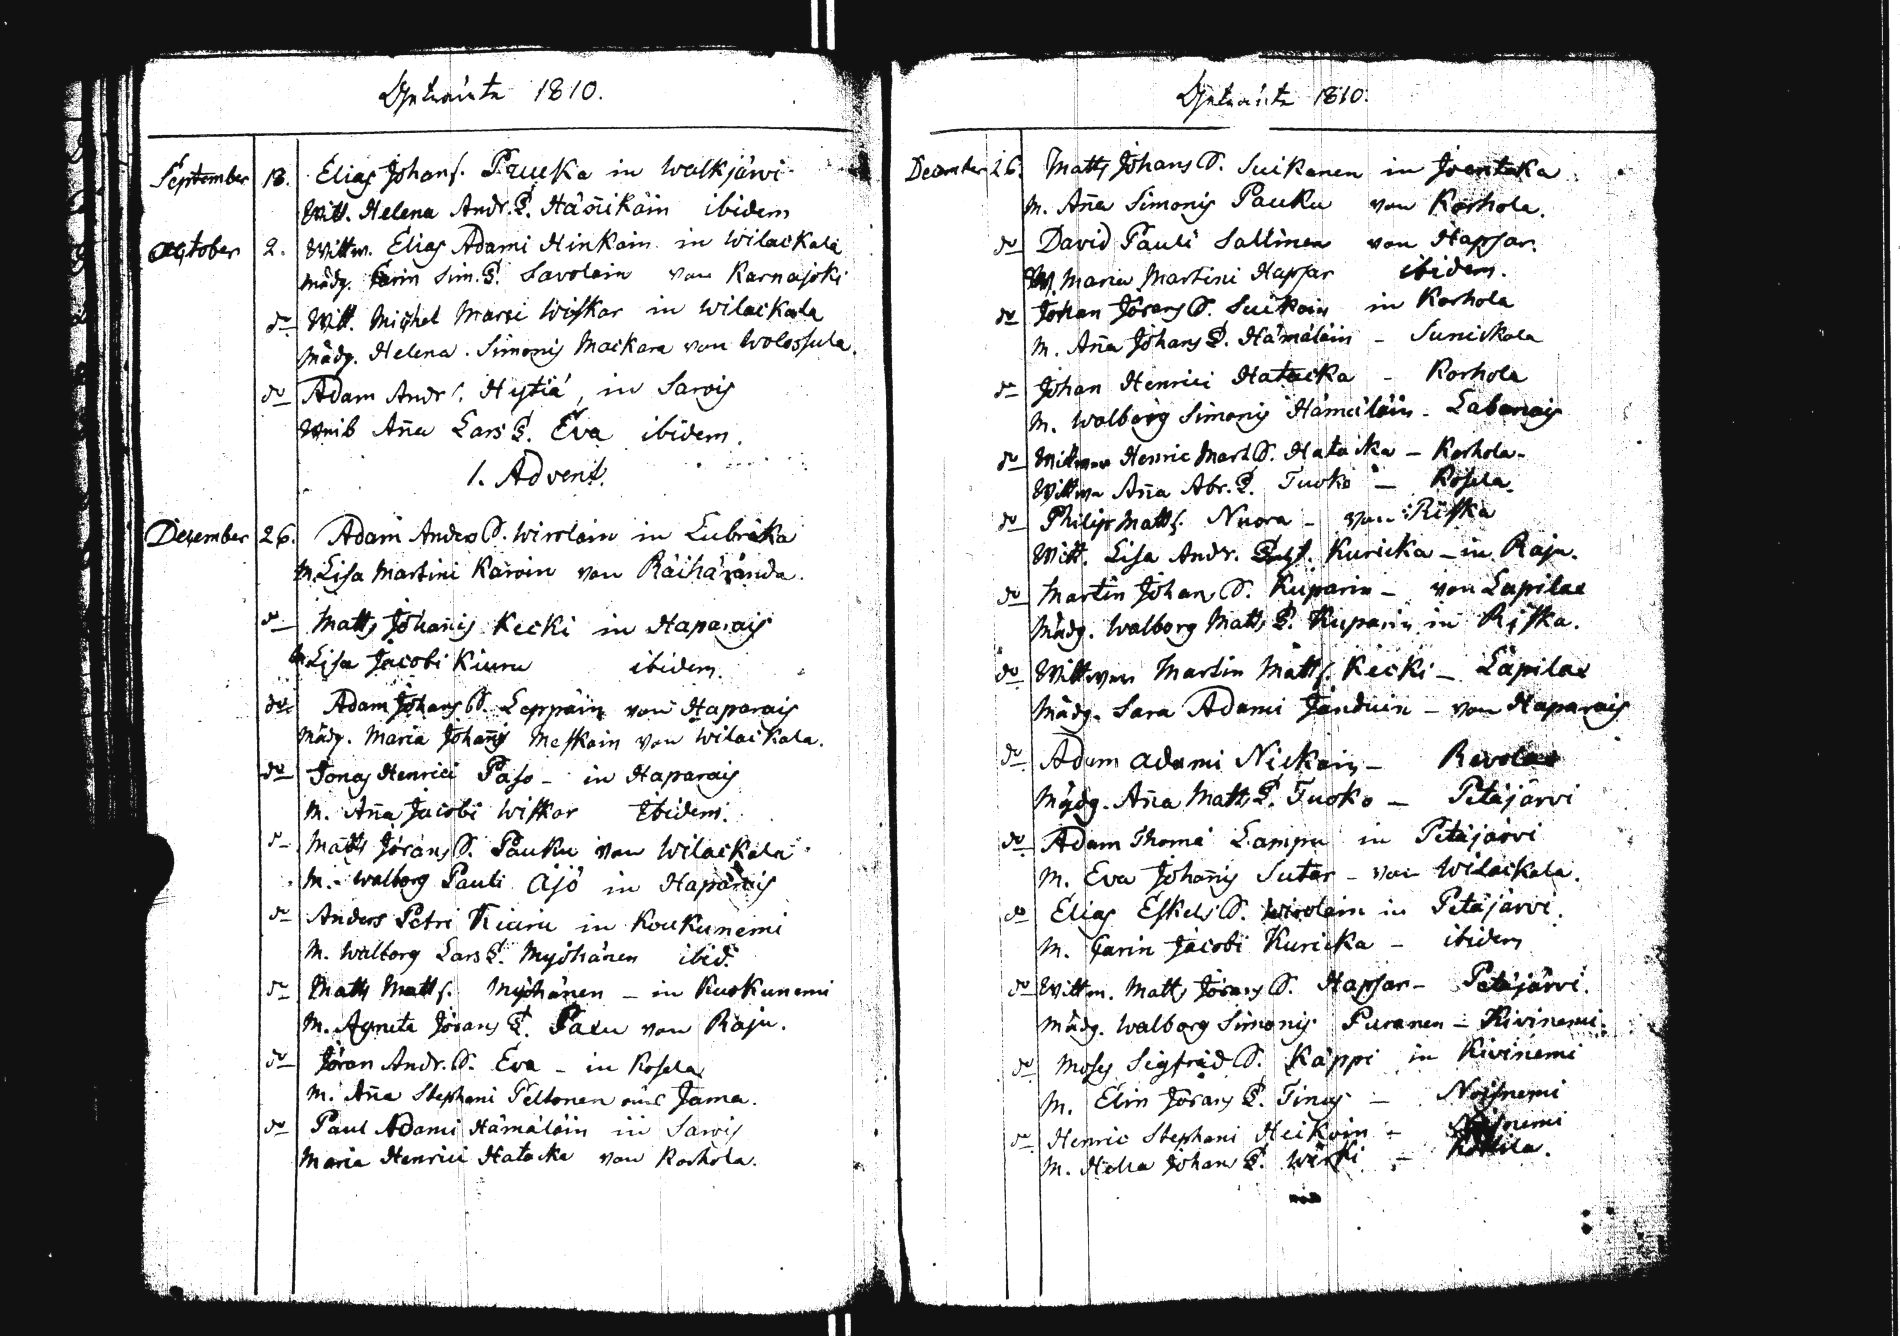 Getraute 1810.
September 18. Elias Johans. Pruuka in Walkjärvi
Witt. Helena Andr. D. Häñikäin ibidem
October 2. Wittw. Elias Adami Hinkain in Wilackala
Mädg. Carin Sim. D. Savolain von Karnajoki
do Witt. Michel Marci Wiskar in Wilackala
Mädg. Helena Simonis Mackara von Wolossula.
do Adam Andr. Hytiä, in Sarvis
Weib Aña Lars D. Eva ibidem.
1. Advent.
December 26. Adam Anders S. Wirolain in Lubraka
M. Lisa Martini Karvin von Räihärända.
do Matts Johañis Kecki in Haparais
M. Lisa Jacobi Kiuru ibidem.
do Adam Johans S. Leppäin von Haparais
Mädg. Maria Johañis Meskain von Wilackala.
do Jonas Henrici Paso - in Haparais
M. Aña Jacobi Wiskar Ibidem.
do Matts Jörans S. Pauku von Wilackala
M. Walborg Pauli Äjö in Haparais
do Anders Petri Kiuru in Koukunemi
M. Walborg Lars D. Myöhänen ibid.
do Matts Matts. Myöhänen - in Kuokunemi
M. Agneta Jörans D. Pacu von Raju.
do Jöran Andr. S. Eva - in Rosela
M. Aña Stephani Peltonen aus Jama.
do Paul Adami Hämäläin in Sarvis
Maria Henrici Hatacka von Korhola.
Getraute 1810.
December 26. Matts Johans S. Suikanen in Joentaka
M. Aña Simonis Pauku von Korhola.
do David Pauli Sallinen von Hapsar.
W. Maria Martini Hapsar ibidem.
do Johan Jörans S. Suikain in Korhola
M. Aña Johans D. Hämäläin - Sunickala
do Johan Henrici Hatacka - Korhola
M. Walborg Simonis Hämäläin - Labanais
do Wittwer Henric Mart. S. Hatacka - Korhola.
Wittwe Aña Abr. D. Tuoko - Rosela.
do Philip Matts. Nuora - von Riska
Witt. Lisa Andr. Kuricka - in Raju.
do Martin Johans S. Kuparin - von Lapilae
Mädg. Walborg Matts D. Kuparin in Riska.
do Wittwer Martin Matts. Kecki - Lapilae
Mädg. Sara Adami Janduin - von Haparais
do Adam Adami Nickain - Rivolae
Mädg. Aña Matts D. Tuoko - Petäjärvi
do Adam Thomä Lampu in Petäjärvi
M. Eva Johañis Sutar - von Wilackala.
do Elias Eskels S. Wirolain in Petäjärvi.
M. Carin Jacobi Kuricka - ibidem
do Wittw. Matts Jörans S. Hapsar - Petäjärvi.
Mädg. Walborg Simonis Puranen - Kivinemi.
do Moses Sigfrid S. Käppi in Kivinemi
M. Elin Jörans D. Tinus - Noisnemi
do Henric Stephani Heikoin -
M. Helka Johans D. Wirki -